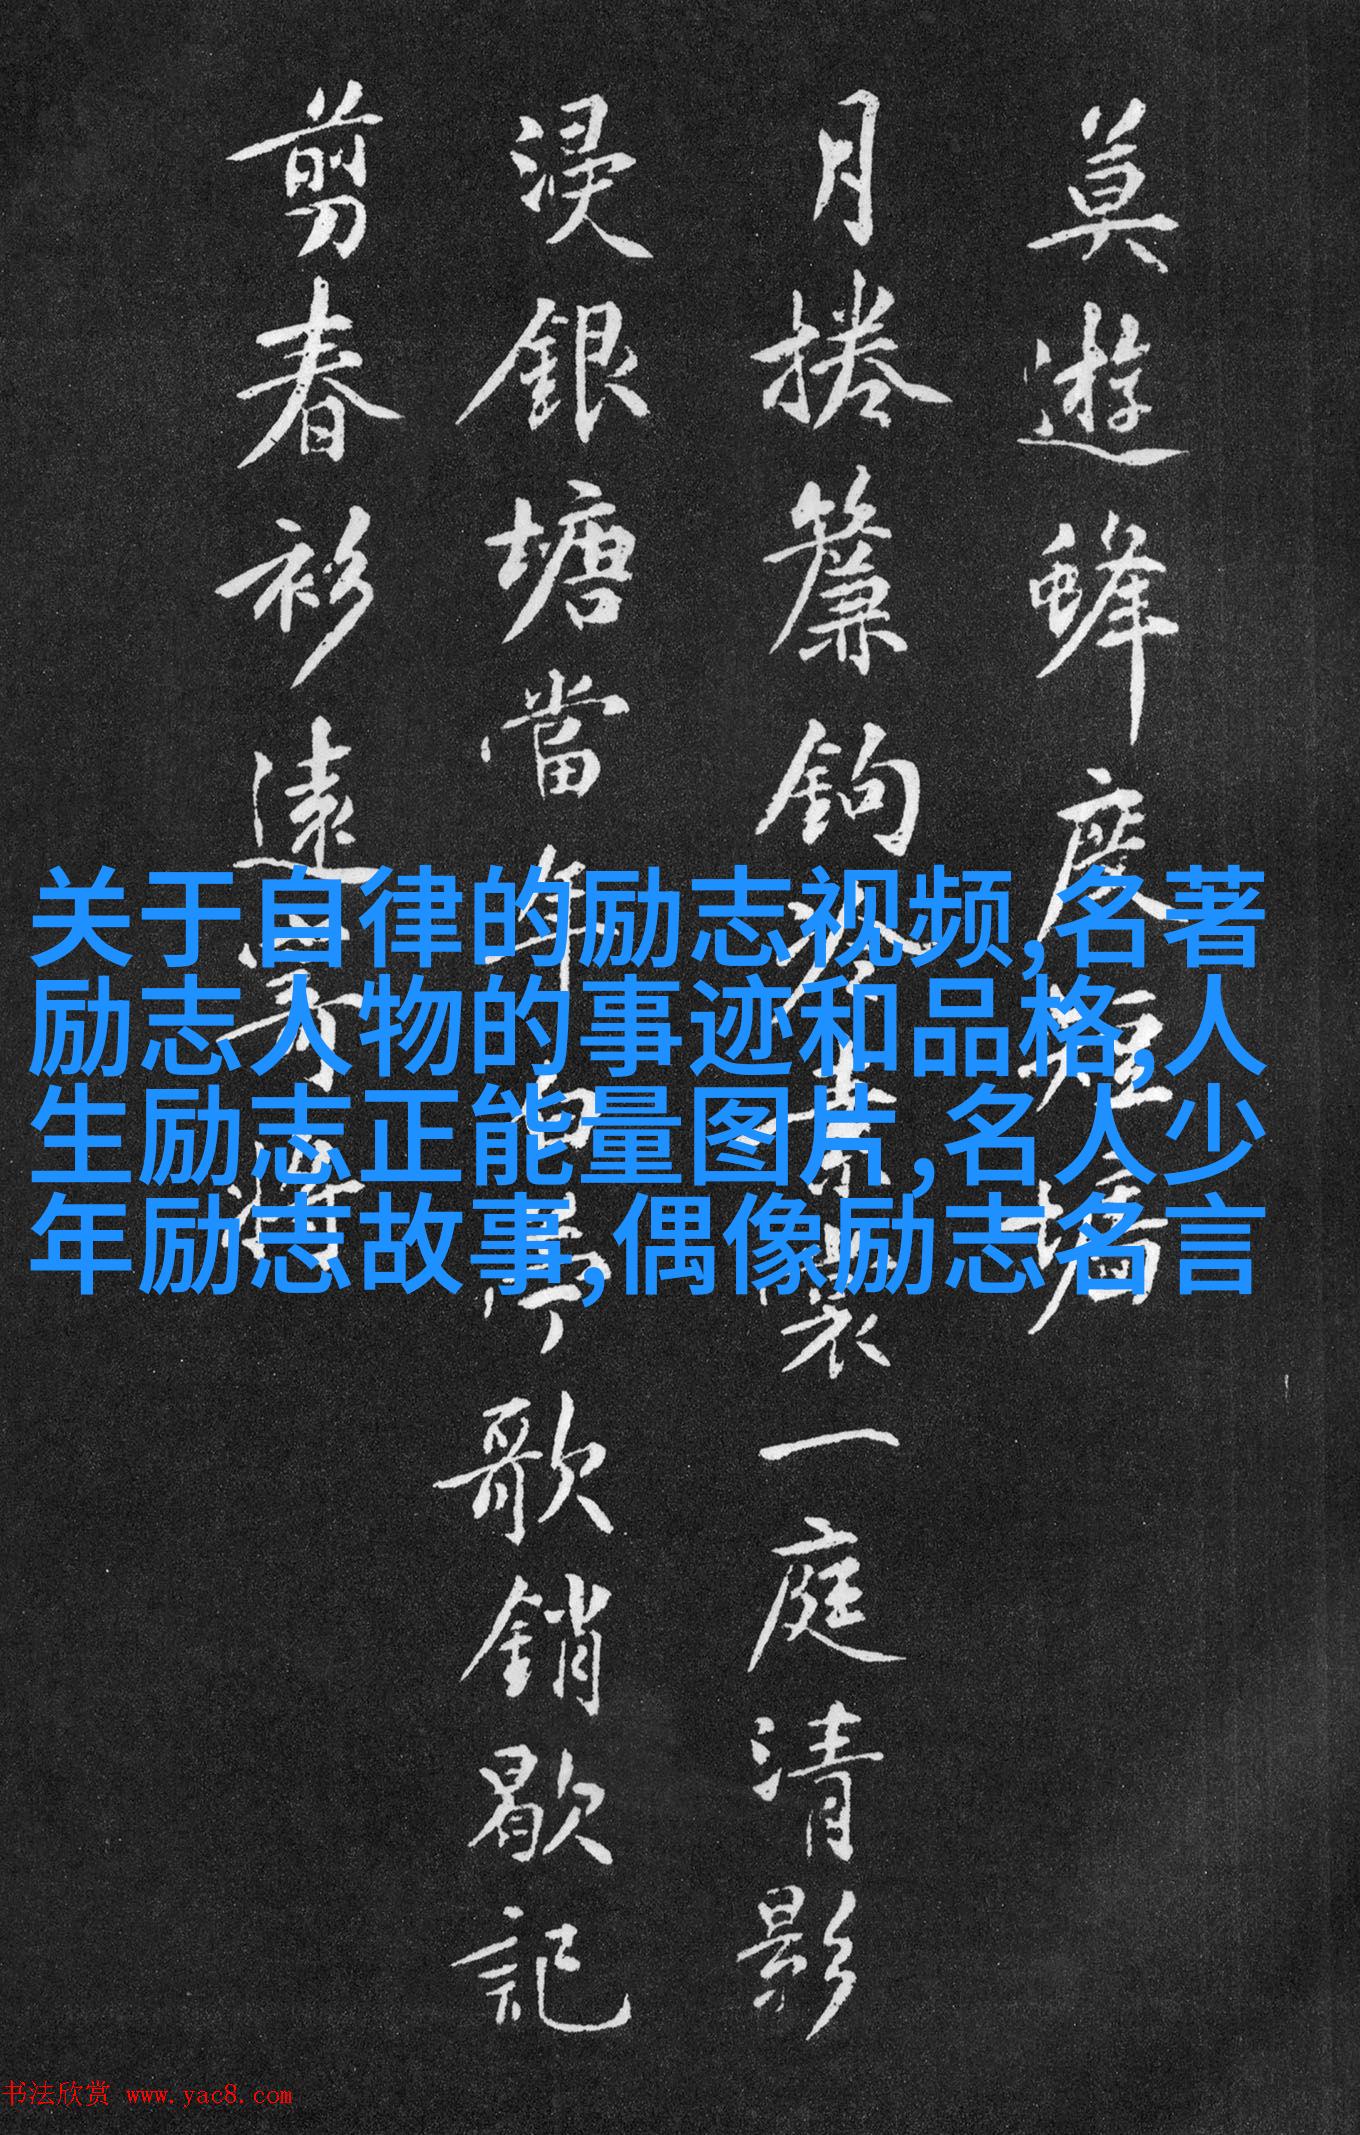 莫遊蜂度短墻
月捲簾鉤一庭清影
浸銀塘當年歌銷歇記
剪春衫遠
关于自律的励志视频,名著
励志人物的事迹和品格,人
生励志正能量图片,名人少
年励志故事,偶像励志名言
书法欣赏 www.yac8.com